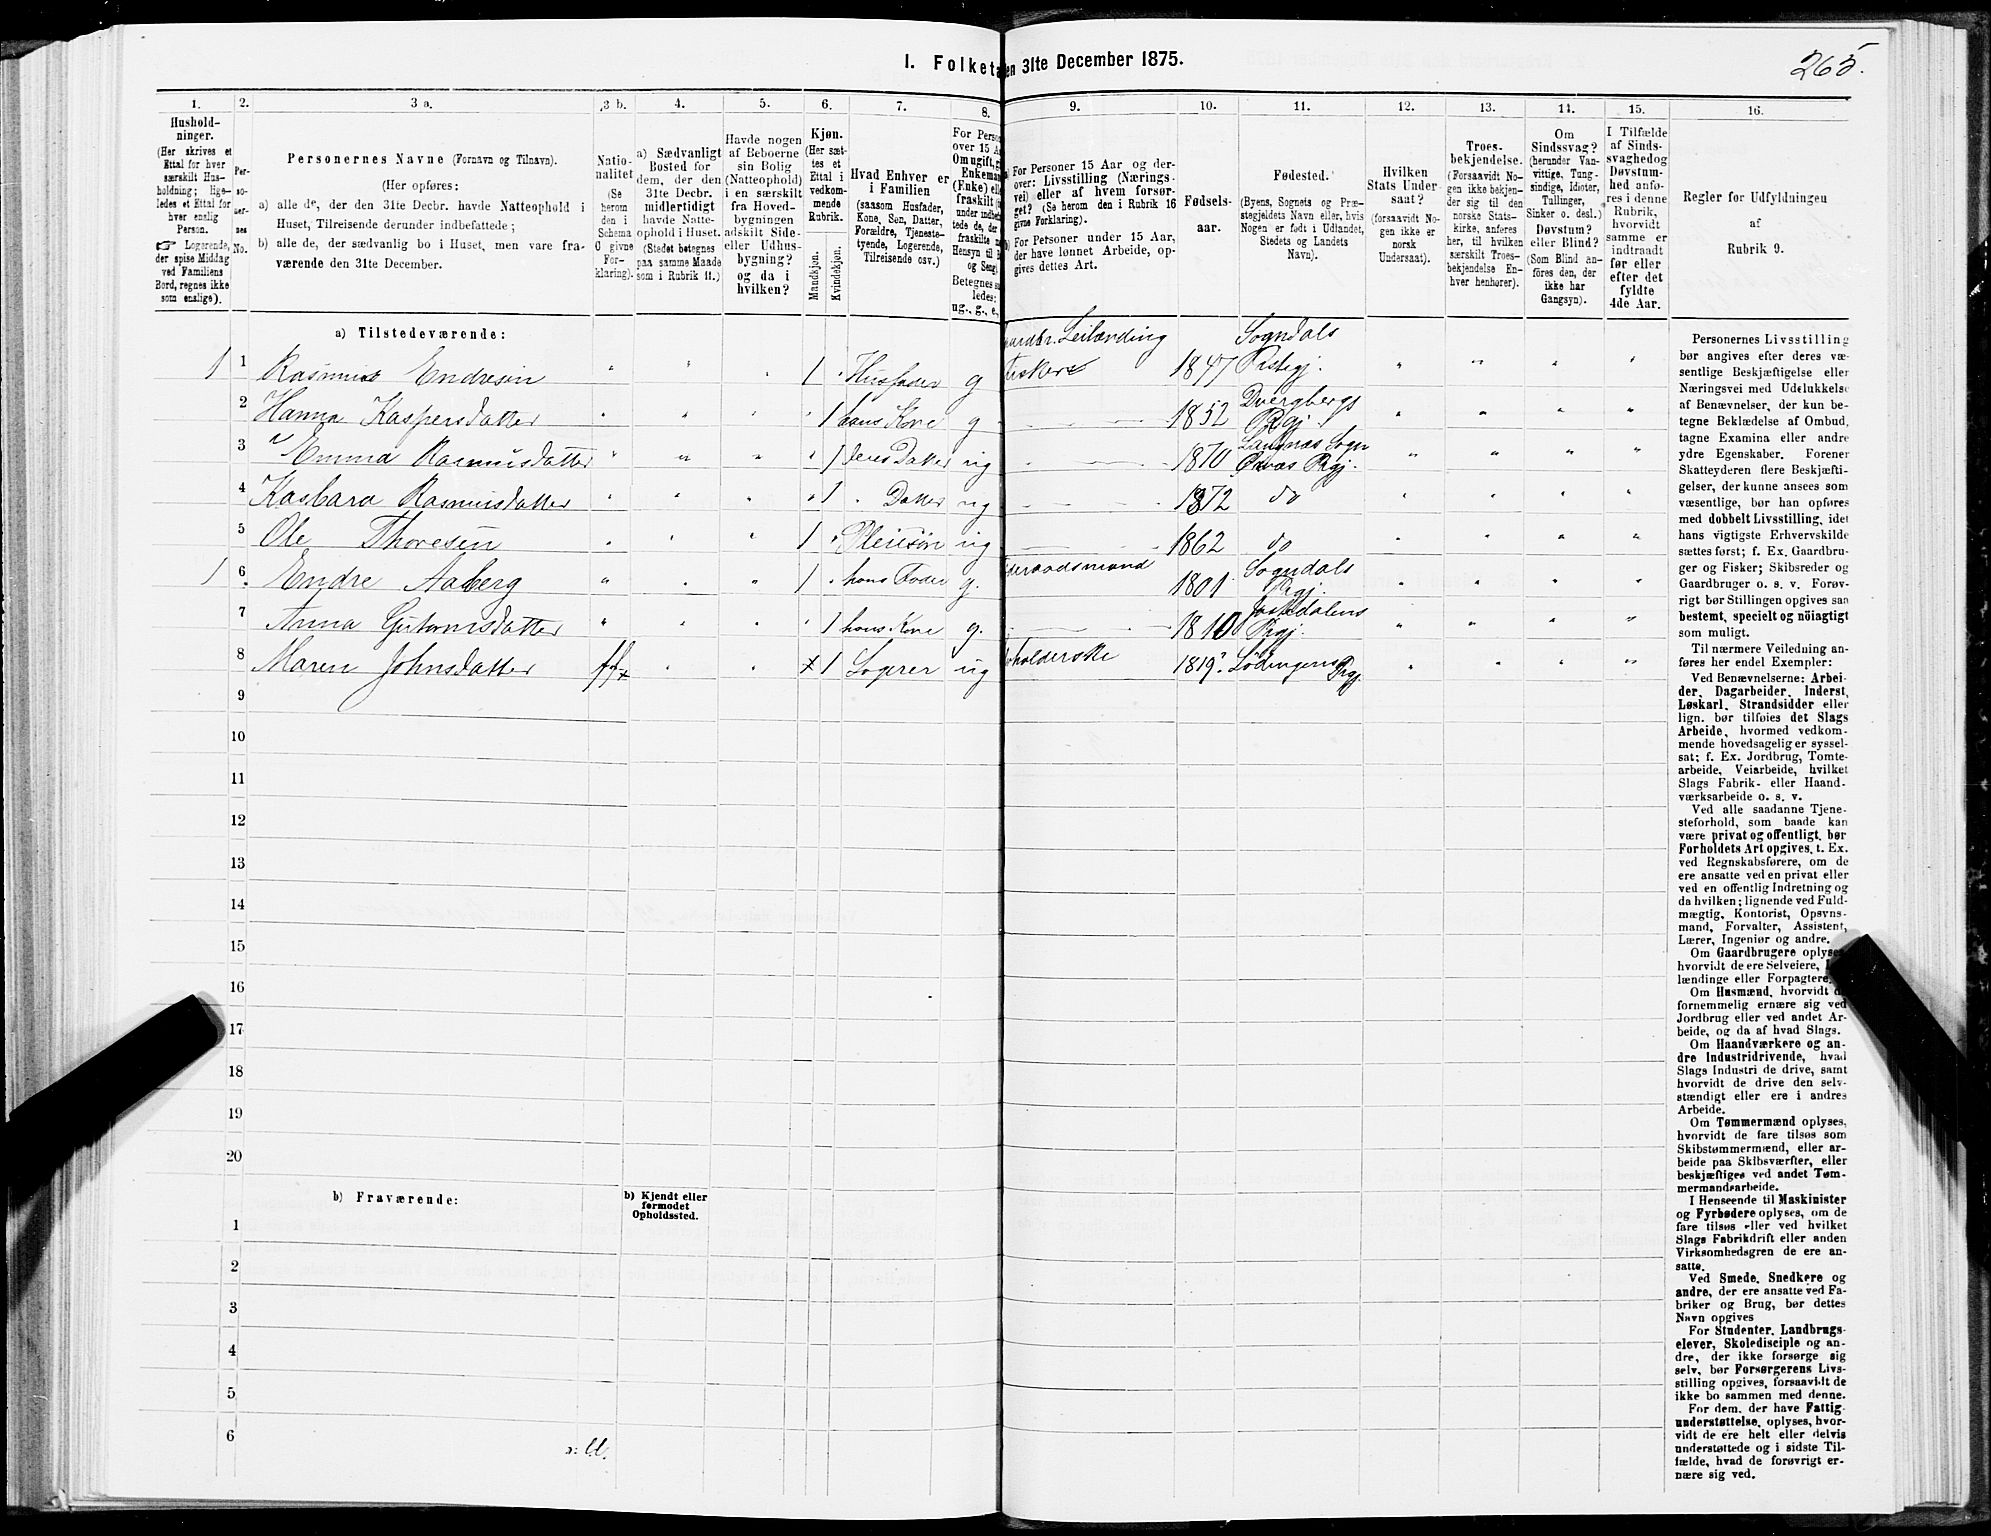 265.
I. Folketa en 31te December 1875.
1. 2. 3 a. 3 b. 4. 5. 6. 7. 8. 9. 10. 11. 12. 13. 14. 15. 16.
Hushold-
ninger.
(Her skrives et
Ettal for hver
særskilt Hus-
holdning; lige-
ledes et Ettal for
hver enslig
Person.
☞ Logerende,
der spise Middag
ved Familiens
Bord, regnes ikke
som enslige).
Per-
so-
ner-
nes
No.
Personernes Navne (Fornavn og Tilnavn).
(Her opføres:
a) alle de, der den 31te Decbr. havde Natteophold i
Huset, Tilreisende derunder indbefattede;
b) alle de, der sædvanlig bo i Huset, men vare fra-
værende den 31te December.
Natio-
nalitet
(Se
herom
den i
Schema
O givne
For-
klaring).
a) Sædvanligt
Bosted for
dem, der den
31te Decbr.
midlertidigt
havde Natte-
ophold i Huset.
(Stedet betegnes
paa samme Maade
som i Rubrik 11.)
Havde nogen
af Beboerne
sin Bolig
(Natteophold)
i en særskilt
fra Hoved-
bygningen
adskilt Side-
eller Udhus-
bygning?
og da i
hvilken?
Kjøn.
(Her sæt-
tes et
Ettal i
vedkom-
mende
Rubrik.
Mandkjøn.
Kvindekjøn.
Hvad Enhver er
i Familien
(saasom Husfader,
Kone, Søn, Datter,
Forældre, Tjeneste-
tyende, Logerende,
Tilreisende osv.).
For Perso
over 15 A
Om ugift, g
Enkeman
(Enke) elle
fraskilt (
under indbef
tede de, der
fraskilte
Hensyn til B
og Seng)
Betegnes sa
ledes:
ug., g., e,
For Personer 15 Aar og der-
over: Livsstilling (Nærings-
vei) eller af hvem forsør-
get? (Se herom den i Rubrik 16
givne Forklaring).
b) For Personer under 15 Aar,
der have lønnet Arbeide, op-
gives dettes Art.
Fødsels-
aar.
Fødested.
(Byens, Sognets og Præ-
stegjeldets Navn eller, hvis
Nogen er født i Udlandet,
Stedets og Landets
Navn).
Hvilken
Stats Under-
saat?
(forsaavidt No-
gen ikke er
norsk
Undersaat).
Troes-
bekjendelse.
(Forsaavidt No-
gen ikke bekjen-
der sig til den
norske Stats-
kirke, anføres
her, til hvilken
særskilt Troes-
bekjendelse En-
hver henhører).
Om
Sindssvag?
(herunder Van-
vittige, Tung-
sindige, Idioter,
Tullinger,
Sinker o. desl.)
Døvstum?
eller Blind?
(Som Blind an-
føres den, der
ikke har
Gangsyn).
I Tilfælde
af Sinds-
svaghedog
Døvstum-
hed anfø-
res i denne
Rubrik,
hvorvidt
samme er
indtraadt
før eller
efter det
fyldte
4de Aar.
Regler for Udfyldningen
af
Rubrik 9.
a) Tilstedeværende:
1 1 Rasmus Endresen " " " 1 " Husfader g aardbr. Leilænding fisker 1847 Sogndals Prstgj. " " " "
2 Hanna Kaspersdatter " " " " 1 hans Kone g 1852 Dverbergs Prgj. " " " "
3 Emma Rasmusdatter " " " " 1 deres Datter ug 1870 Langnæs Sogn Øxnæs Prgj. " " " "
4 Kasbara Rasmusdatter " " " " 1 " Datter ug 1872 do " " " "
5 Ole Thoresen " " " 1 " Pleiesøn ug 1862 do " " " "
1 6 Endre Aaberg " " " 1 " hans Fader g. deraadsmand 1801 Sogndals Prgj. " " " "
7 Anna Gutormsdatter " " " " 1 hans Kone g. 1810 Jostedalens Prgj. " " " "
8 Maren Johnsdatter ffx " " x 1 Logerer ug holderske 1819. Lødingens Prgj. " " " "
9
10
11
12
13
14
15
16
17
18
19
20
b) Fraværende:
b) Kjendt eller
formodet
Opholdssted.
1
2
3
4
5
6
Personernes Livsstilling
bør angives efter deres væ-
sentlige Beskjæftigelse eller
Næringsvei med Udelukkelse
af Benævnelser, der kun be-
tegne Beklædelse af Ombud,
tagne Examina eller andre
ydre Egenskaber. Forener
Skatteyderen flere Beskjæfti-
gelser, der kunne ansees som
væsentlige, bør han opføres
med dobbelt Livsstilling, idet
hans vigtigste Erhvervskilde
sættes først; f. Ex. Gaardbru-
ger og Fisker; Skibsreder og
Gaardbruger o. s. v. Forøv-
rigt bør Stillingen opgives saa
bestemt, specielt og nöiagtigt
som muligt.
Til nærmere Veiledning an-
føres her endel Exempler:
Ved Benævnelserne: Arbei-
der, Dagarbeider, Inderst,
Løskarl, Strandsidder eller
lign. bør tilføies det Slags
Arbeide, hvormed vedkom-
mende hovedsagelig er syssel-
sat; f. Ex. Jordbrug, Tomte-
arbeide, Veiarbeide, hvilket
Slags Fabrik- eller Haand-
værksarbeide o. s. v.
Ved alle saadanne Tjene-
steforhold, som baade kan
være privat og offentligt, bør
Forholdets Art opgives, t. Ex.
ved Regnskabsførere, om de
ere ansatte ved en privat eller
ved en offentlig Indretning og
da hvilken; lignende ved Fuld-
mægtig, Kontorist, Opsyns-
mand, Forvalter, Assistent,
Lærer, Ingeniør og andre.
Om Gaardbrugere oplyses,
hvorvidt de ere Selveiere, L
lændinge eller Forpagtere.
Om Husmænd, hvorvidt d
fornemmelig ernære sig ved
Jordbrug eller ved andet Ar-
beide, og da af hvad Slags.
Om Haandværkere og an-
dre Industridrivende, hvad
Slags Industri de drive, samt
hvorvidt de drive den selv-
stændigt eller ere i andres
Arbeide.
Om Tømmermænd oplyses,
hvorvidt de fare tilsøs som
Skibstømmermænd, eller ar-
beide paa Skibsværfter, eller
beskjæftiges ved andet Tøm-
mermandsarbeide.
I Henseende til Maskinister
og Fyrbødere oplyses, om de
fare tilsøs eller ved hvilket
Slags Fabrikdrift eller anden
Virksomhedsgren de ere an-
satte.
Ved Smede, Snedkere og
andre, der ere ansatte ved Fa-
briker og Brug, bør dettes
Navn opgives
For Studenter, Landbrugs-
elever, Skoledisciple og an-
dre, der ikke forsørge sig
selv, bør Forsørgerens Livs-
stilling opgives, forsaavidt de
ikke bo sammen med denne.
For dem, der have Fattig-
understøttelse, oplyses, hvor-
vidt de ere helt eller delvis
understøttede og i sidste Til-
fælde, hvad de forøvrigt er-
nære sig ved.